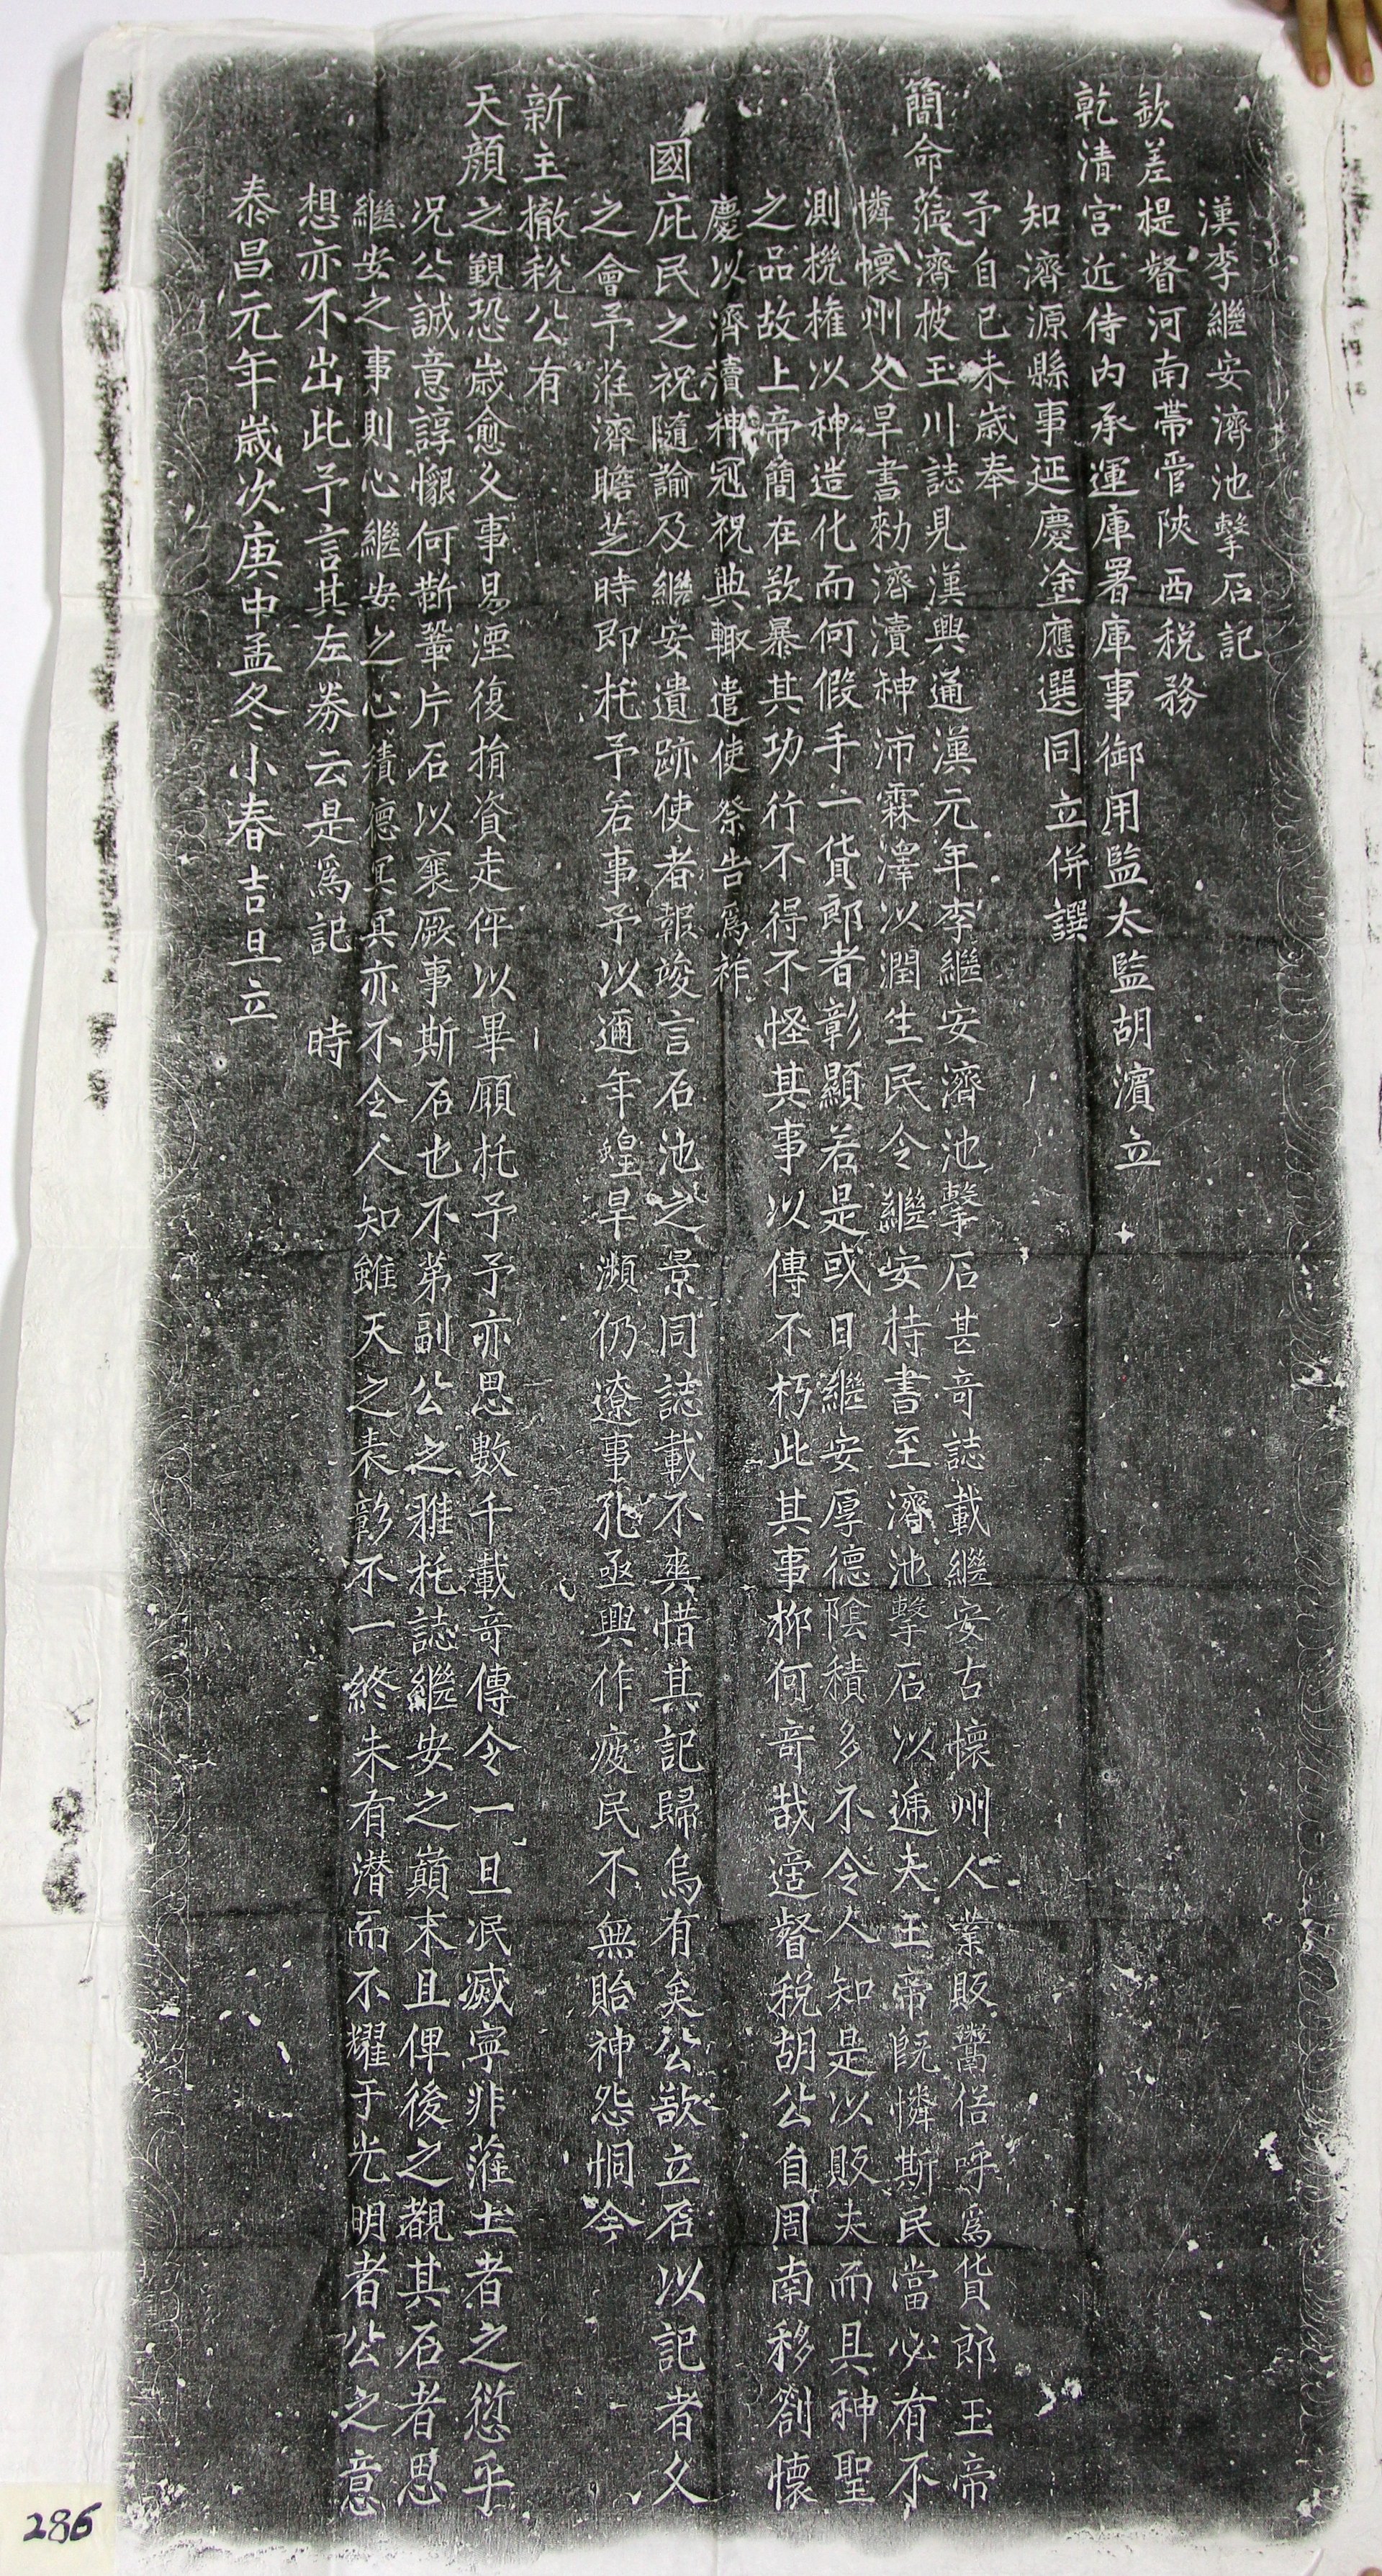 漢李繼安濟池擊石記
欽差提督河南帶管陝西稅務
乾清宮近侍內承運庫署庫事御用監太監胡濱立
知濟源縣事延慶塗應選同立併譔
予自己未歲奉
簡命蒞濟披玉川誌見漢興通漢元年李繼安濟池擊石甚奇誌載繼安古懷州人業販鬻俗呼為貨郎玉帝
憐懷州久旱書勑濟瀆神沛霖澤以潤生民令繼安持書至濟池擊石以遞夫玉帝既憐斯民當必有不
測機權以神造化而何假手一貨郎者彰顯若是或曰繼安厚德陰積多不令人知是以販夫而具神聖
之品故上帝簡在欲暴其功行不得不怪其事以傳不朽此其事抑何奇哉適督稅胡公自周南移劄懷
慶以濟瀆神冠祝典輙遣使祭告為祚
國庇民之祝隨諭及繼安遺跡使者報竣言石池之景同誌載不爽惜其記歸烏有矣公欲立石以記者久
之會予蒞濟瞻芝時即托予若事予以邇年蝗旱瀕仍遼事孔亟興作疲民不無貽神怨恫今
新主撤稅公有
天顏之覲恐歲愈久事易湮復捐資走伻以畢願托予予亦思數千載奇傳令一旦泯滅寧非蒞土者之愆乎
況公誠意諄懇何斳鞏片石以襄厥事斯石也不第副公之雅托誌繼安之巔末且俾後之觀其石者思
繼安之事則心繼安之心積德冥冥亦不令人知雖天之表彰不一終未有潛而不耀于光明者公之意
想亦不出此予言其左券云是為記　時
泰昌元年歲次庚申孟冬小春吉旦立
286